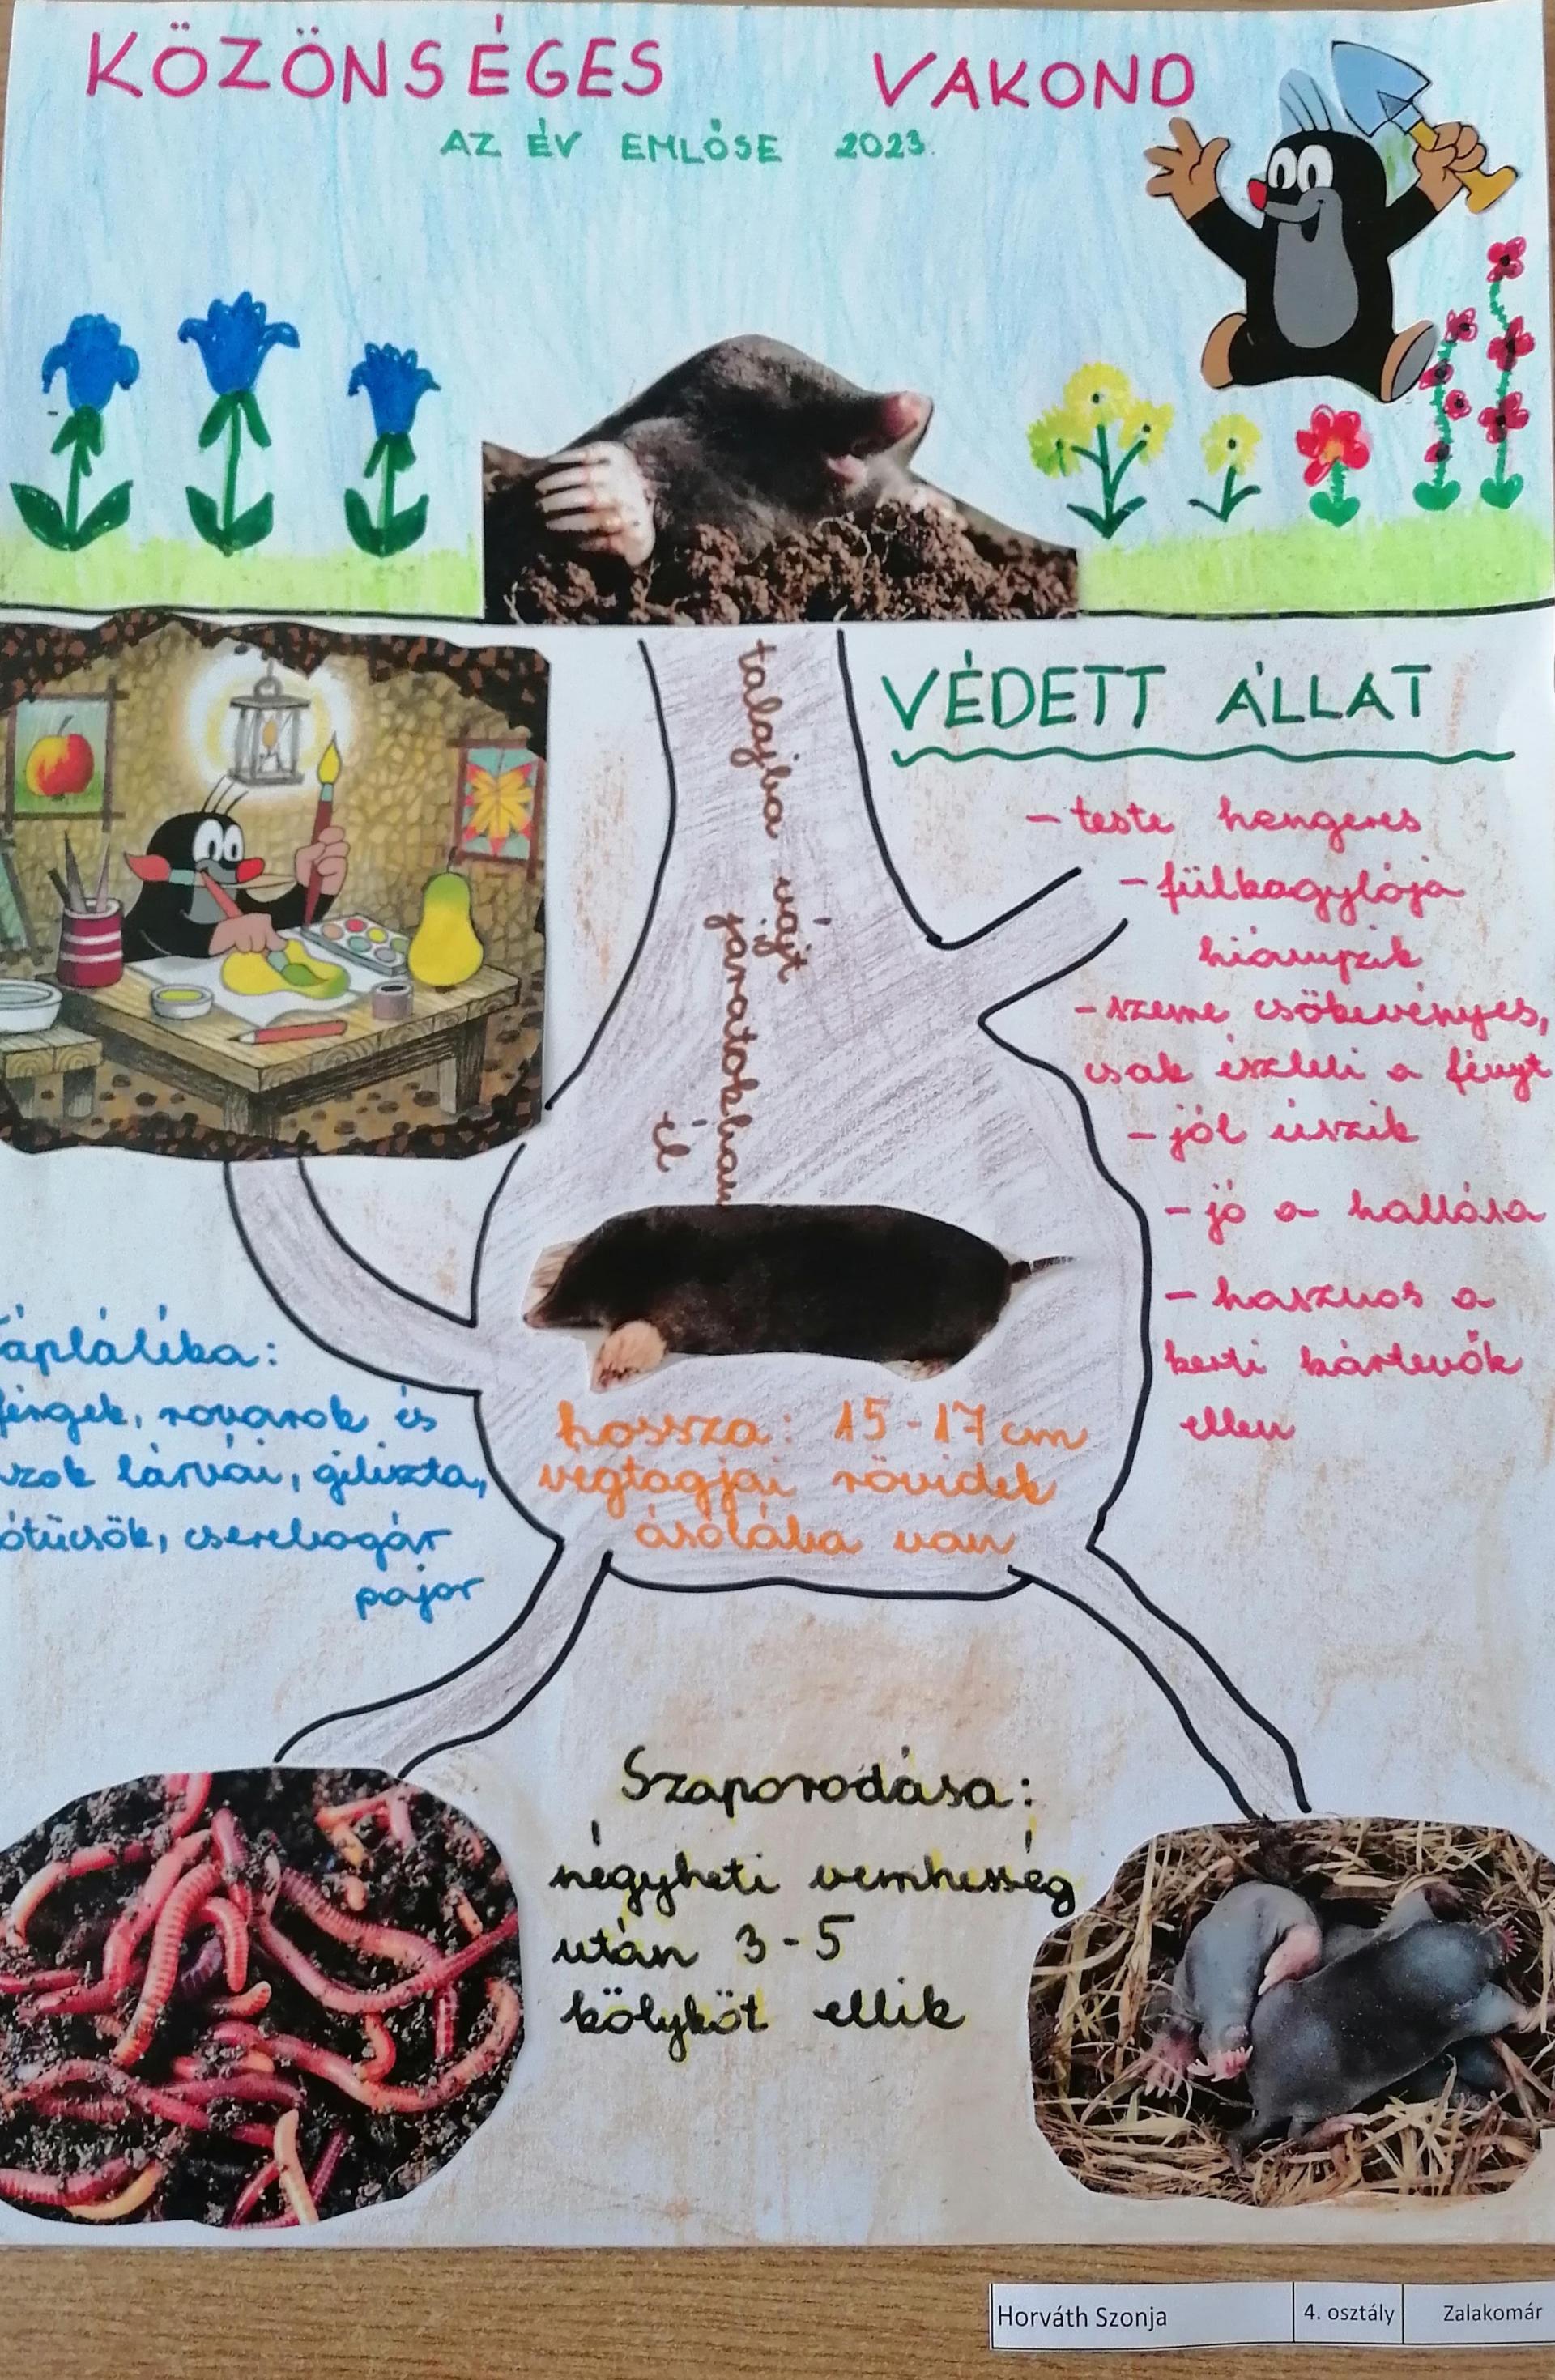 KÖZÖNSÉGES VAKOND
AZ ÉV EMLŐSE 2023.
talajba vájt
járatokban
él
VÉDETT ÁLLAT
- teste hengeres
- fülkagylója
hiányzik
- szeme csökevényes,
csak észleli a fényt
- jól úszik
- jó a hallása
- hasznos a
kerti kártevők
ellen
Tápláléka:
férgek, rovarok és
azok lárvái, giliszta,
lótücsök, cserebogár
pajor
hossza: 15-17 cm
végtagjai rövidek
ásólába van
Szaporodása:
négyheti vemhesség
után 3-5
kölyköt ellik
Horváth Szonja 4. osztály Zalakomár